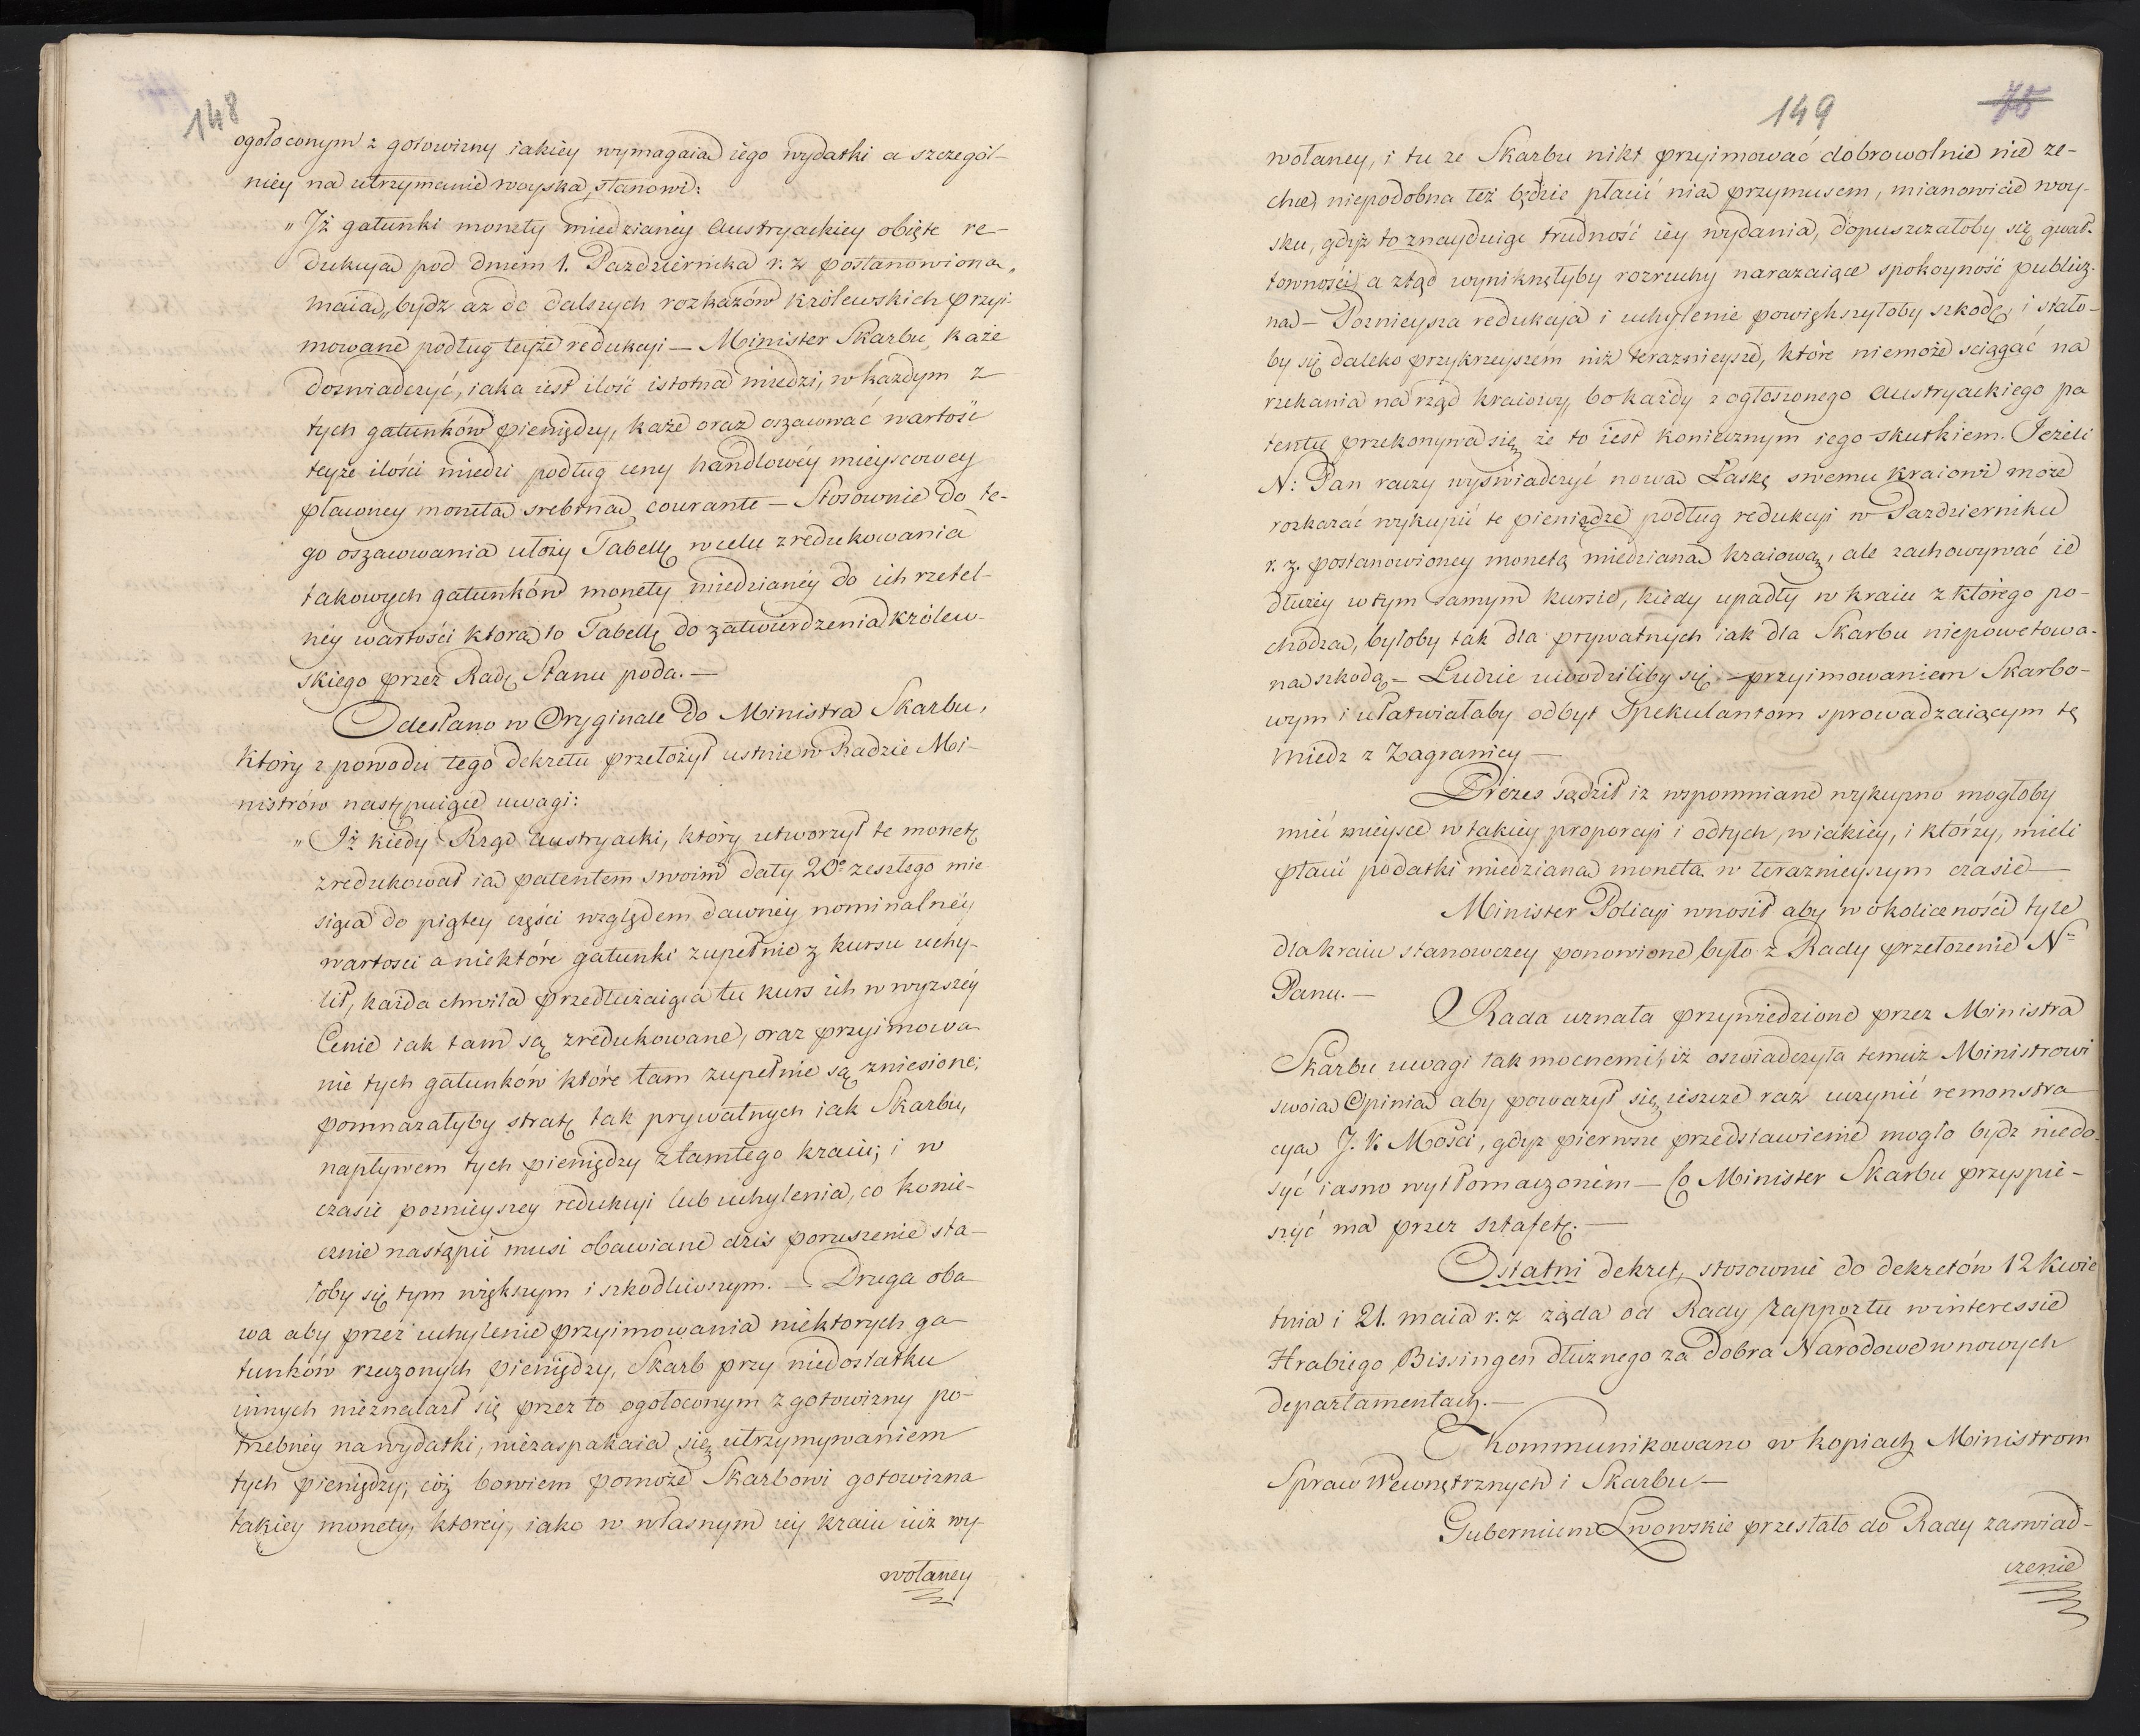 148
ogołoconym z gotowizny iakiey wymagaią iego wydatki a szczegól-
niey na utrzymanie woyska, stanowi:
„Iż gatunki monety miedzianéy Austryackiey obięte re-
dukcyą pod dniem 1. Pazdziernika r. z. postanowioną,
maią bydz az do dalszych rozkazów królewskich przyi-
mowane podług teyże redukcyi — Minister Skarbu, każe
doswiadczyć, iaka iest ilość istotna miedzi, w każdym z
tych gatunków pieniędzy, każe oraz oszacować wartość
teyże ilości miedzi podług ceny handlowéy mieyscowey
płaconey monetą srebrną courante — Stosownie do te-
go oszacowania ułoży Tabellę w celu zredukowania
takowych gatunków monety miedzianéy do ich rzetel-
néy wartości ktorą to Tabellę do zatwierdzenia królew-
skiego przez Radę Stanu poda. —
Odesłano w Oryginale do Ministra Skarbu,
który z powodu tego dekretu przełożył ustnie w Radzie Mi-
nistrów następuiące uwagi:
„Iż kiedy Rząd Austryacki, który utworzył te monetę
zredukował ią patentem swoim daty 20º zeszłego mie
siąca do piątey części względem dawnéy nominalnéy
wartosci a niektóre gatunki zupełnie z kursu uchy-
lił, każda chwila przedłużaiąca tu kurs ich w wyzszéy
Cenie iak tam są zredukowane, oraz przyimowa
nie tych gatunków które tam zupełnie są zniesione;
pomnazałyby stratę tak prywatnych iak Skarbu,
napływem tych pieniędzy z tamtego kraiu; i w
czasie poznieyszey redukcyi lub uchylenia, co konie-
cznie nastąpić musi obawiane dziś poruszenie sta-
łoby się tym większym i szkodliwszym. — Druga oba
wa aby przez uchylenie przyimowania niektorych ga
tunków rzeczonych pieniędzy, Skarb przy niedostatku
innych nieznalazł się przez to ogołoconym z gotowizny po-
trzebnéy na wydatki, niezaspakaia się utrzymywaniem
tych pieniędzy; cóż bowiem pomoże Skarbowi gotowizna
takiey monety, ktorey, iako w własnym iey kraiu iuż wy-
wołaney
149
75
wołaney, i tu ze Skarbu nikt przyimować dobrowolnie nie ze-
chce, niepodobna też będzie płacić nią przymusem, mianowicie woy-
sku, gdyż to znayduiąc trudność iéy wydania, dopuszczałoby się gwał-
towności a ztąd wyniknęłyby rozruchy narazaiące spokoyność publicz-
ną — Poznieysza redukcya i uchylenie powiększyłoby szkodę, i stało-
by się daleko przykrzeyszem niż terazniejsze, które niemoże sciągać na
rzekania na rząd kraiowy, bo każdy z ogłoszonego Austryackiego pa
tentu przekonywa się, że to iest koniecznym iego skutkiem. Jeżeli
N: Pan raczy wyświadczyć nową Łaskę swemu kraiowi może
rozkazać wykupić te pieniądze podług redukcyi w Pazdzierniku
r. z. postanowioney monetą miedzianą kraiową, ale zachowywać ie
dłużéy w tym samym kursie, kiedy upadły w kraiu z którego po-
chodzą, byłoby tak dla prywatnych iak dla Skarbu niepowetowa-
ną szkodą — Ludzie uwodziliby się przyimowaniem Skarbo-
wym i ułatwiałaby odbyt Spekulantom sprowadzaiącym tę
miedz z Zagranicy —
Prezes sądził iz wspomniane wykupno mogłoby
mieć mieysce w takiey proporcyi i od tych, w iakiey, i którzy, mieli
płacić podatki miedzianą monetą w teraznieyszym czasie —
Minister Policyi wnosił aby w okoliczności tyle
dla kraiu stanowczey ponowione było z Rady przełożenie N.
Panu. —
Rada uznała przywiedzione przez Ministra
Skarbu uwagi tak mocnemi, iż oswiadczyła temuż Ministrowi
swoią Opinią aby poważył się ieszcze raz uczynić remonstra
cyą J. K. Mości, gdyż pierwsze przedstawienie mogło bydz niedo-
syć iasno wytłomaczoném — Co Minister Skarbu przyspie-
szyć ma przez sztafetę. —
Ostatni dekret, stosownie do dekretów 12 Kwie
tnia i 21. maia r. z żąda od Rady Rapportu w interessie
Hrabiego Bissingen dłużnego za dobra Narodowe w nowych
departamentach. —
Kommunikowano w kopiach Ministrom
Spraw Wewnętrznych i Skarbu —
Gubernium Lwowskie przesłało do Rady zaswiad-
czenie